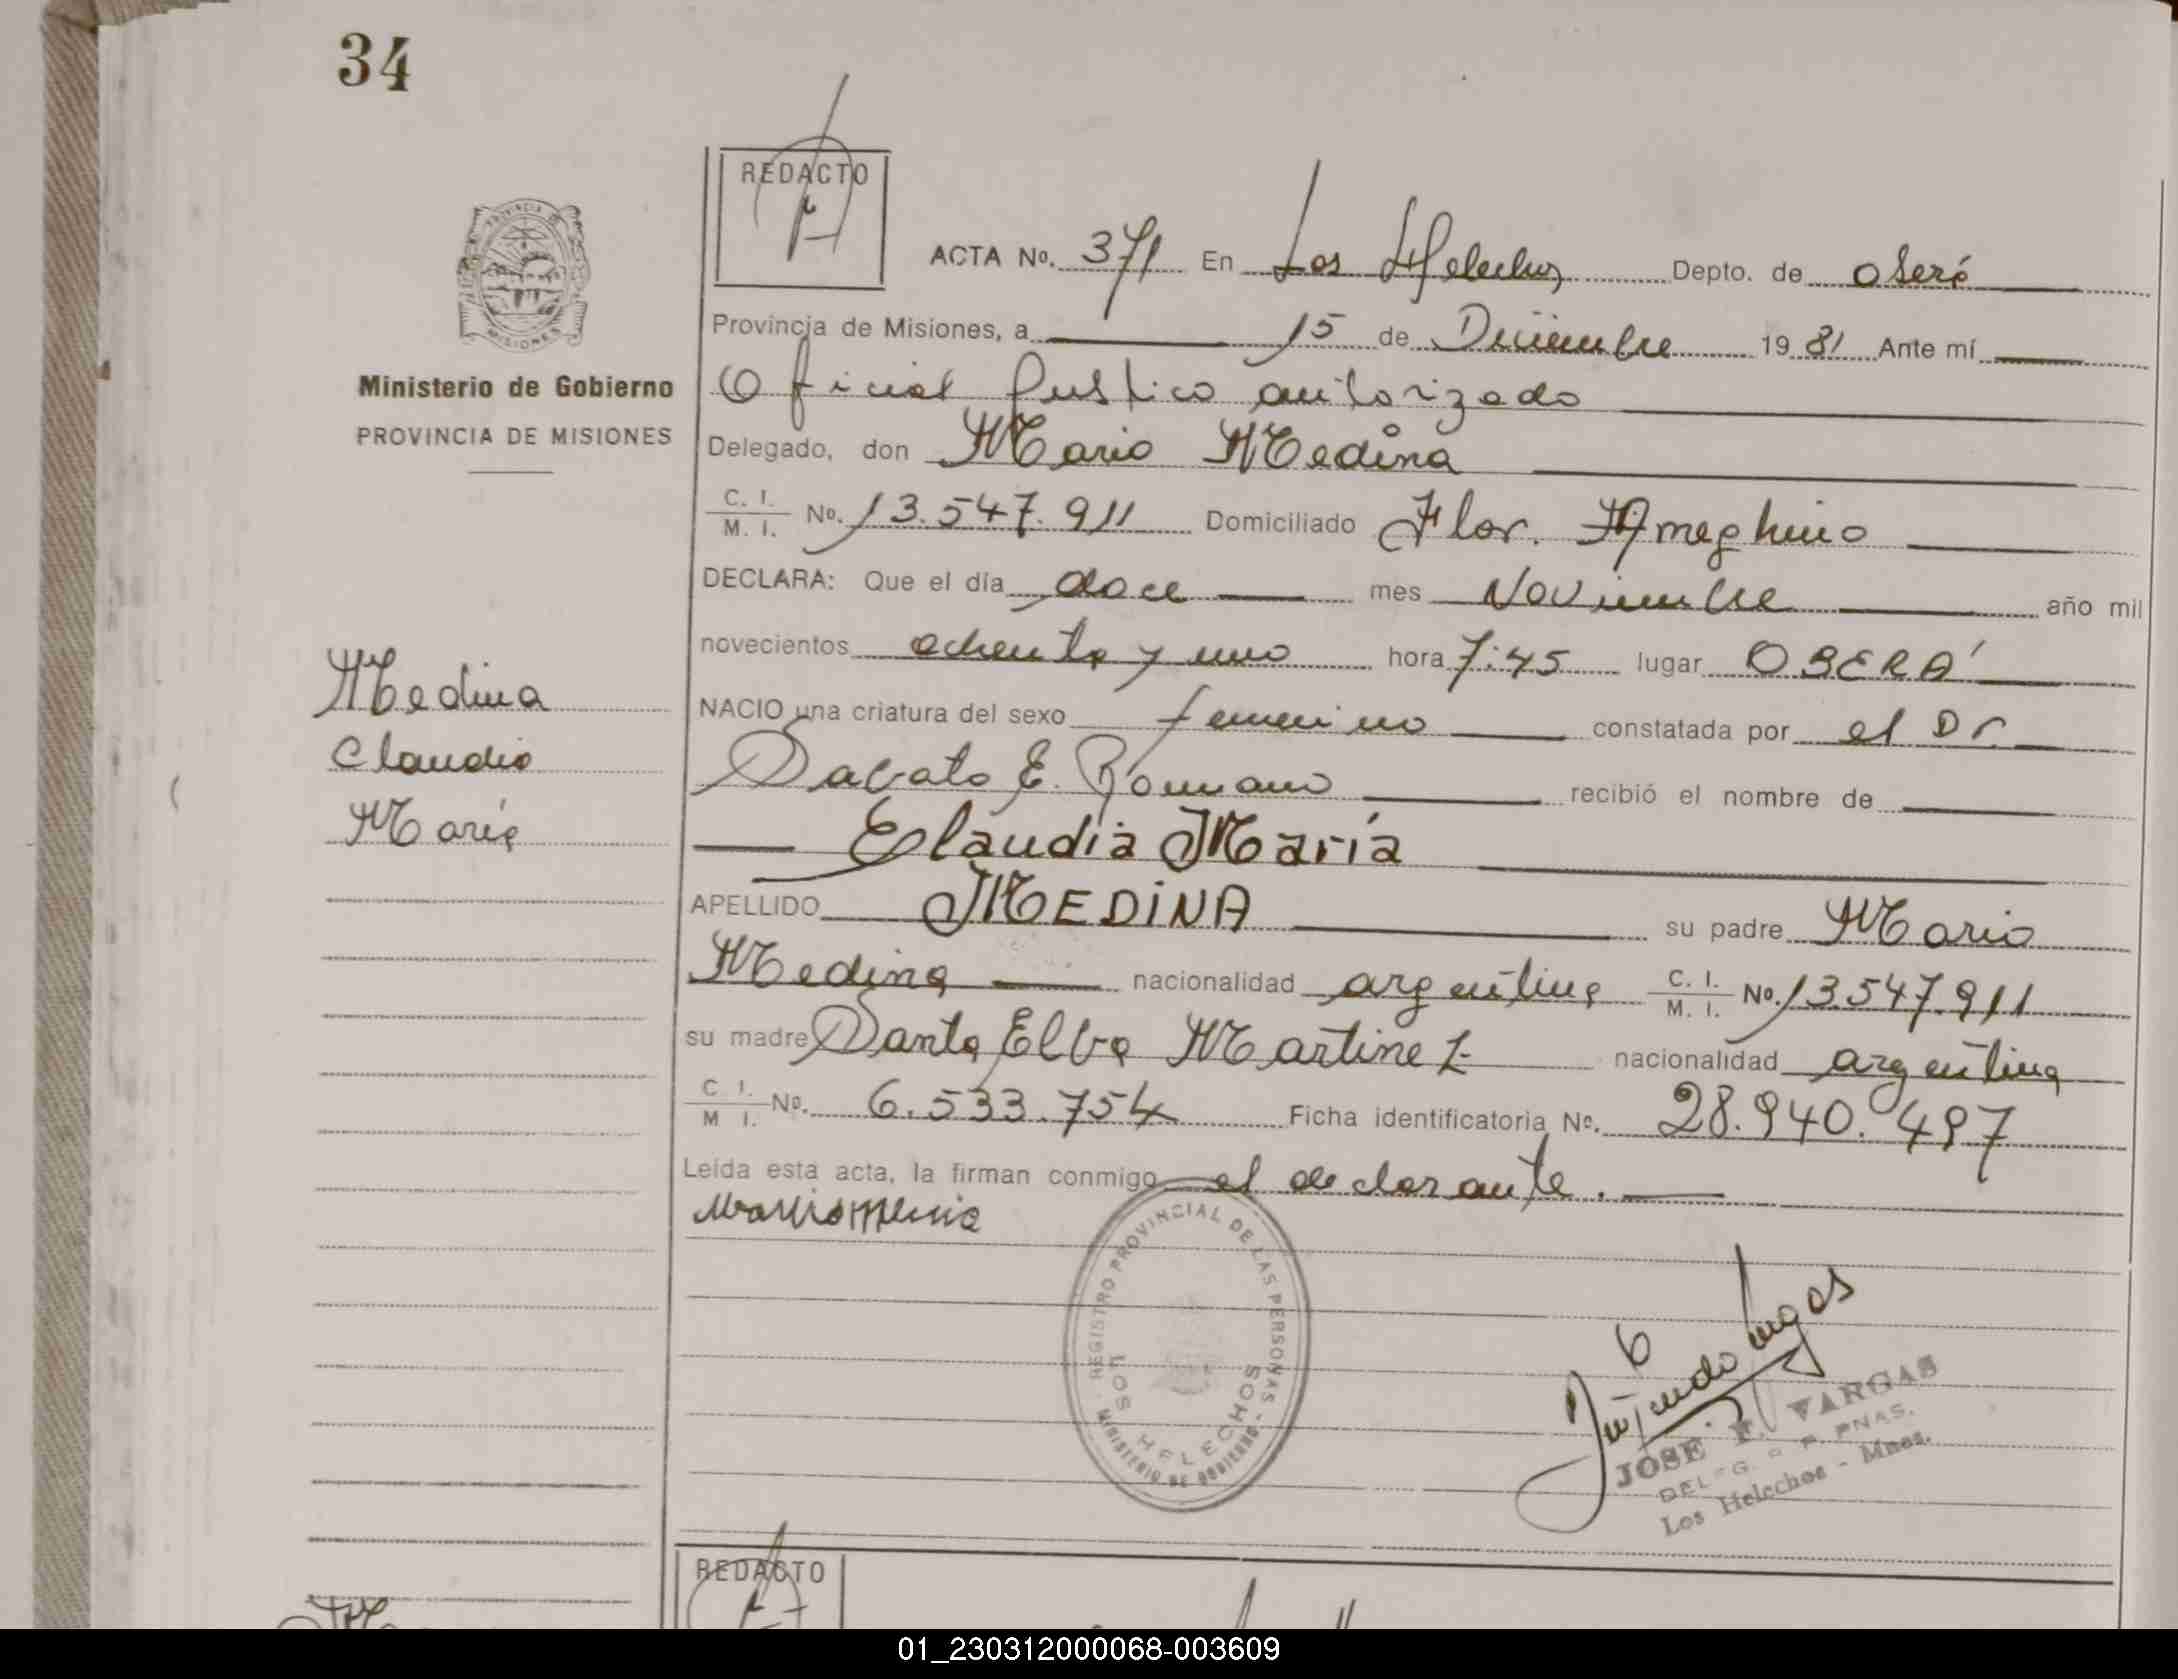 34
REDACTO
ACTA No. 371 En Los Helechos Depto. de oberá
Provincia de Misiones, a 15 de Diciembre 1981 Ante mí
Oficial Publico autorizado
Ministerio de Gobierno
PROVINCIA DE MISIONES
Delegado, don Mario Medina
C. I. M. I. No. 13.547.911 Domiciliado Flor. Ameghino
DECLARA: Que el día doce mes Noviembre año mil
novecientos ochenta y uno hora 7:45 lugar OBERA'
Medina
Claudia
María
NACIO una criatura del sexo femenino constatada por el Dr.
Sabato E. Romano recibió el nombre de
Claudia María
APELLIDO MEDINA su padre Mario
Medina nacionalidad argentina C. I. M. I. No. 13.547.911
su madre Santa Elba Martinez nacionalidad argentina
C I. M I. No. 6.533.754 Ficha identificatoria No. 28.940.497
Leída esta acta, la firman conmigo el declarante.
REGISTRO PROVINCIAL DE LAS PERSONAS
MINISTERIO DE GOBIERNO
LOS HELECHOS
JOSE F. VARGAS
Los Helechos - Mnes.
REDACTO
01_230312000068-003609